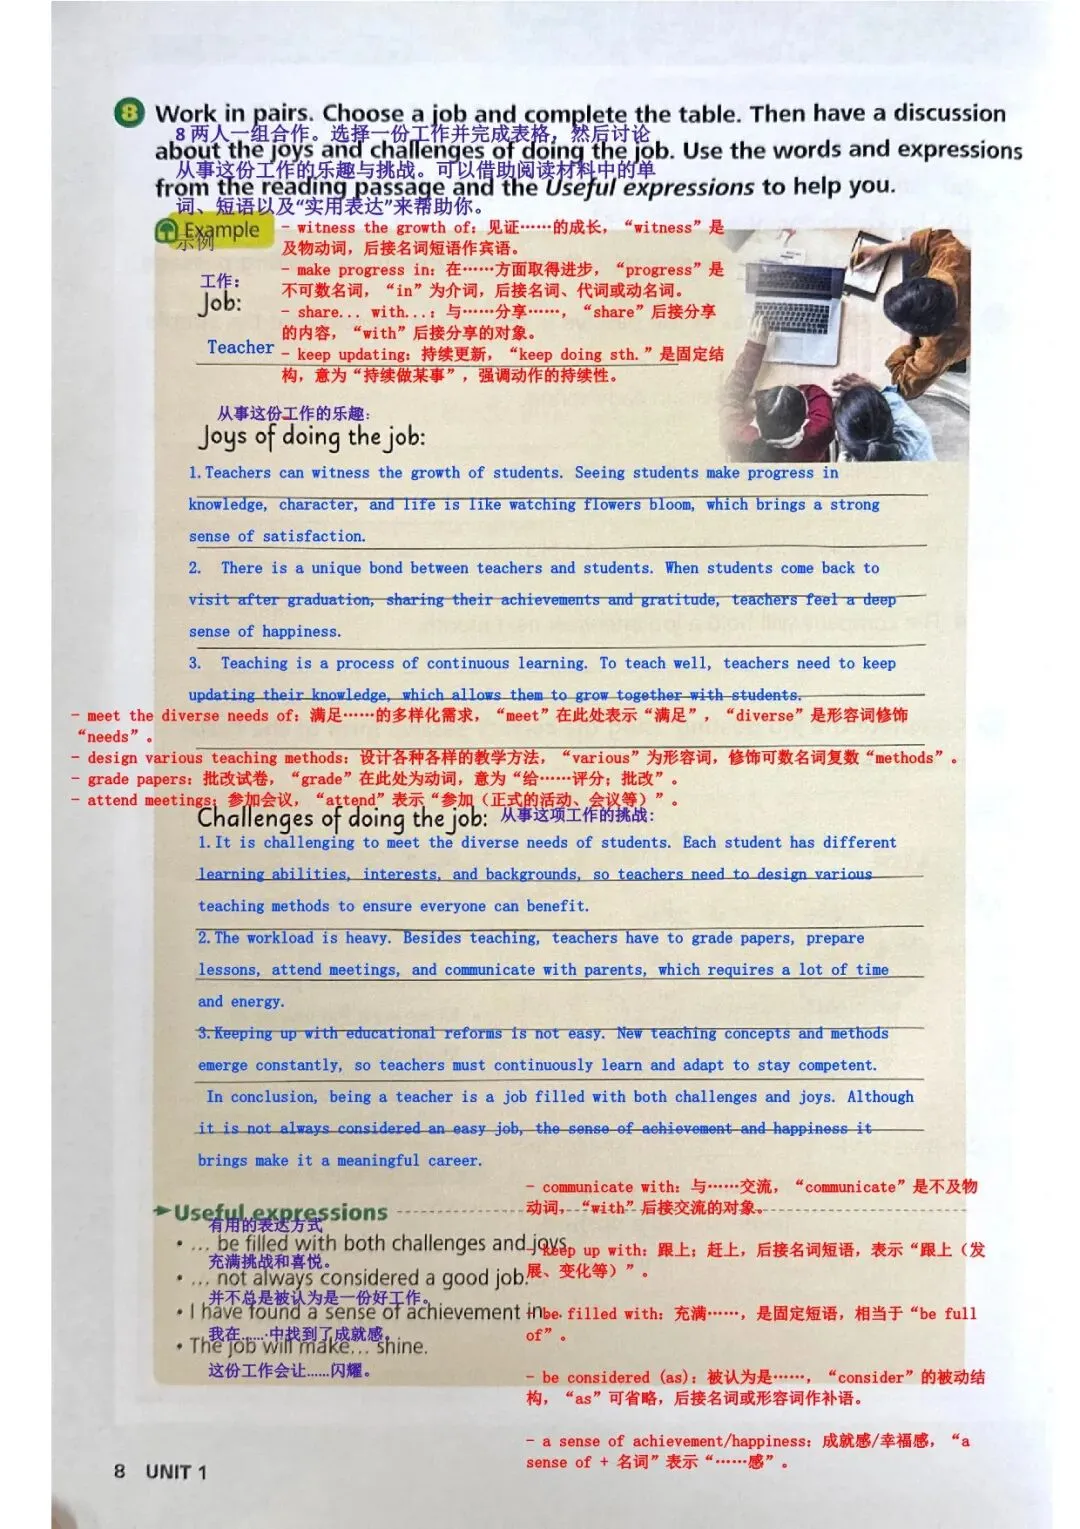 8 Work in pairs. Choose a job and complete the table. Then have a discussion
8 两人一组合作。选择一份工作并完成表格，然后讨论
about the joys and challenges of doing the job. Use the words and expressions
从事这份工作的乐趣与挑战。可以借助阅读材料中的单
from the reading passage and the Useful expressions to help you.
词、短语以及“实用表达”来帮助你。
Example
示例
- witness the growth of: 见证……的成长，“witness”是
及物动词，后接名词短语作宾语。
- make progress in: 在……方面取得进步，“progress”是
不可数名词，“in”为介词，后接名词、代词或动名词。
- share... with...: 与……分享……，“share”后接分享
的内容，“with”后接分享的对象。
- keep updating: 持续更新，“keep doing sth.”是固定结
构，意为“持续做某事”，强调动作的持续性。
工作：
Job:
Teacher
从事这份工作的乐趣：
Joys of doing the job:
1. Teachers can witness the growth of students. Seeing students make progress in
knowledge, character, and life is like watching flowers bloom, which brings a strong
sense of satisfaction.
2. There is a unique bond between teachers and students. When students come back to
visit after graduation, sharing their achievements and gratitude, teachers feel a deep
sense of happiness.
3. Teaching is a process of continuous learning. To teach well, teachers need to keep
updating their knowledge, which allows them to grow together with students.
- meet the diverse needs of: 满足……的多样化需求，“meet”在此处表示“满足”，“diverse”是形容词修饰
“needs”。
- design various teaching methods: 设计各种各样的教学方法，“various”为形容词，修饰可数名词复数“methods”。
- grade papers: 批改试卷，“grade”在此处为动词，意为“给……评分；批改”。
- attend meetings: 参加会议，“attend”表示“参加（正式的活动、会议等）”。
Challenges of doing the job: 从事这项工作的挑战：
1. It is challenging to meet the diverse needs of students. Each student has different
learning abilities, interests, and backgrounds, so teachers need to design various
teaching methods to ensure everyone can benefit.
2. The workload is heavy. Besides teaching, teachers have to grade papers, prepare
lessons, attend meetings, and communicate with parents, which requires a lot of time
and energy.
3. Keeping up with educational reforms is not easy. New teaching concepts and methods
emerge constantly, so teachers must continuously learn and adapt to stay competent.
In conclusion, being a teacher is a job filled with both challenges and joys. Although
it is not always considered an easy job, the sense of achievement and happiness it
brings make it a meaningful career.
Useful expressions
有用的表达方式
• ... be filled with both challenges and joys.
充满挑战和喜悦。
• ... not always considered a good job.
并不总是被认为是一份好工作。
• I have found a sense of achievement in...
我在……中找到了成就感。
• The job will make... shine.
这份工作会让……闪耀。
- communicate with: 与……交流，“communicate”是不及物
动词，“with”后接交流的对象。
- keep up with: 跟上；赶上，后接名词短语，表示“跟上（发
展、变化等）”。
- be filled with: 充满……，是固定短语，相当于“be full
of”。
- be considered (as): 被认为是……，“consider”的被动结
构，“as”可省略，后接名词或形容词作补语。
- a sense of achievement/happiness: 成就感/幸福感，“a
sense of + 名词”表示“……感”。
8 UNIT 1